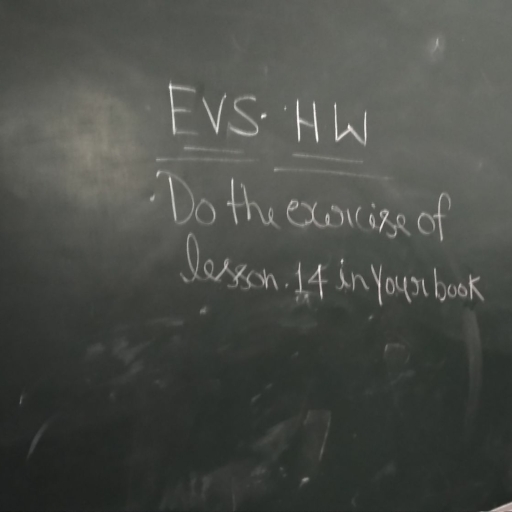 EVS. HW
Do the exorcize of
lesson. 14 in your book